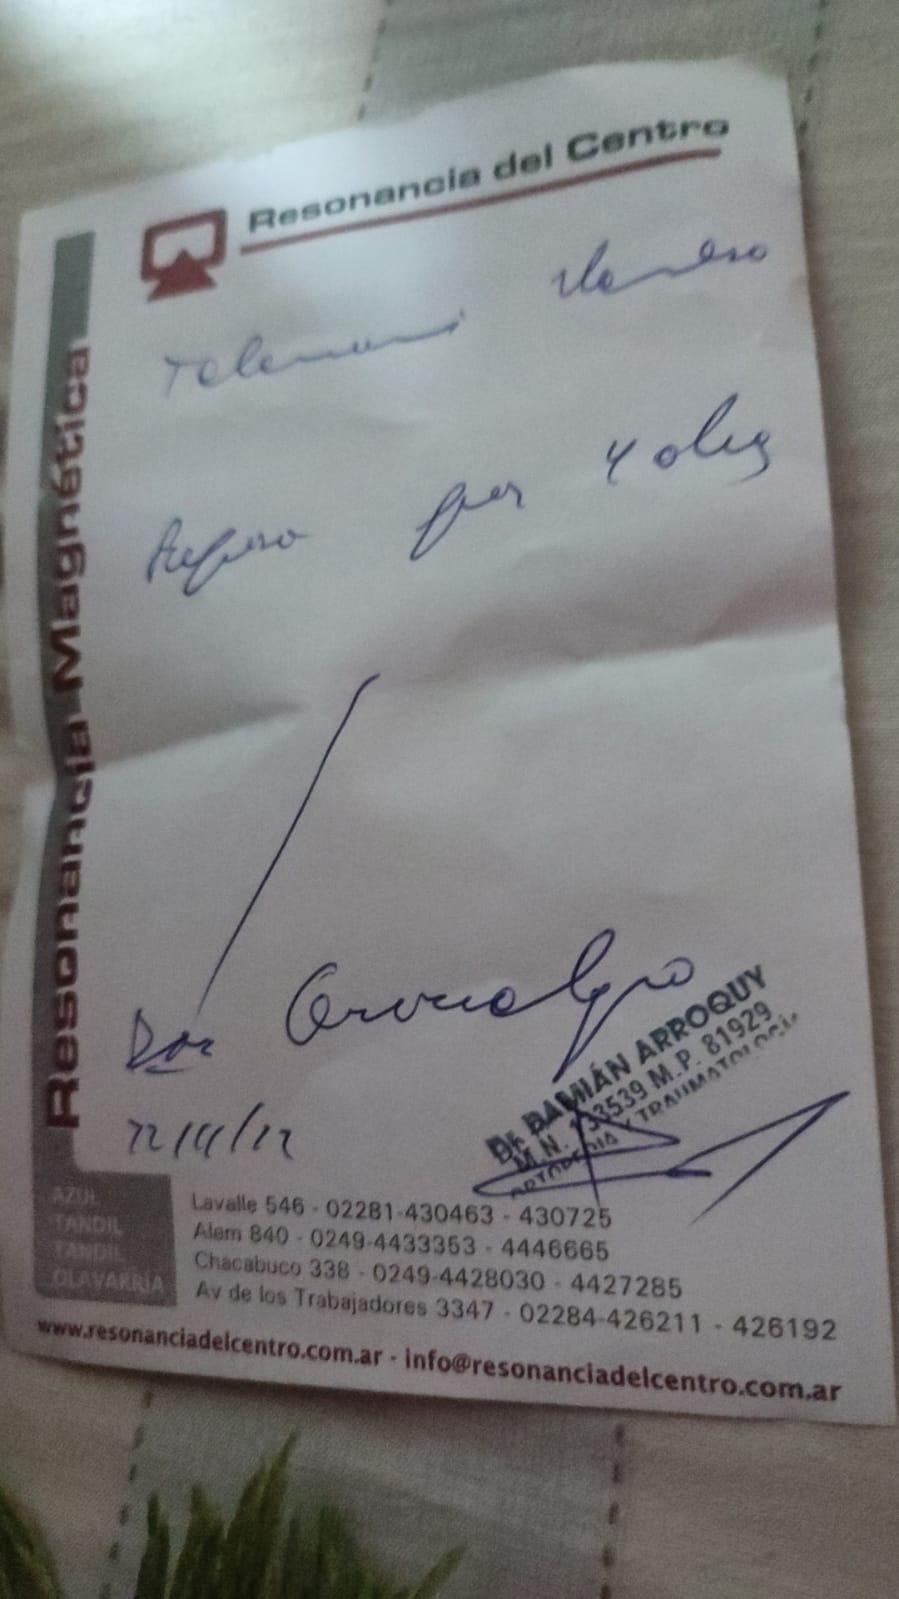 Resonancia del Centro
Resonancia Magnética
Reposo por 4 dias
Dx: Cervicalgia
Dr. DAMIÁN ARROQUY
M.P. 81929
ORTOPEDIA Y TRAUMATOLOGÍA
AZUL Lavalle 546 - 02281-430463 - 430725
TANDIL Alem 840 - 0249-4433353 - 4446665
TANDIL Chacabuco 338 - 0249-4428030 - 4427285
OLAVARRÍA Av de los Trabajadores 3347 - 02284-426211 - 426192
www.resonanciadelcentro.com.ar - info@resonanciadelcentro.com.ar